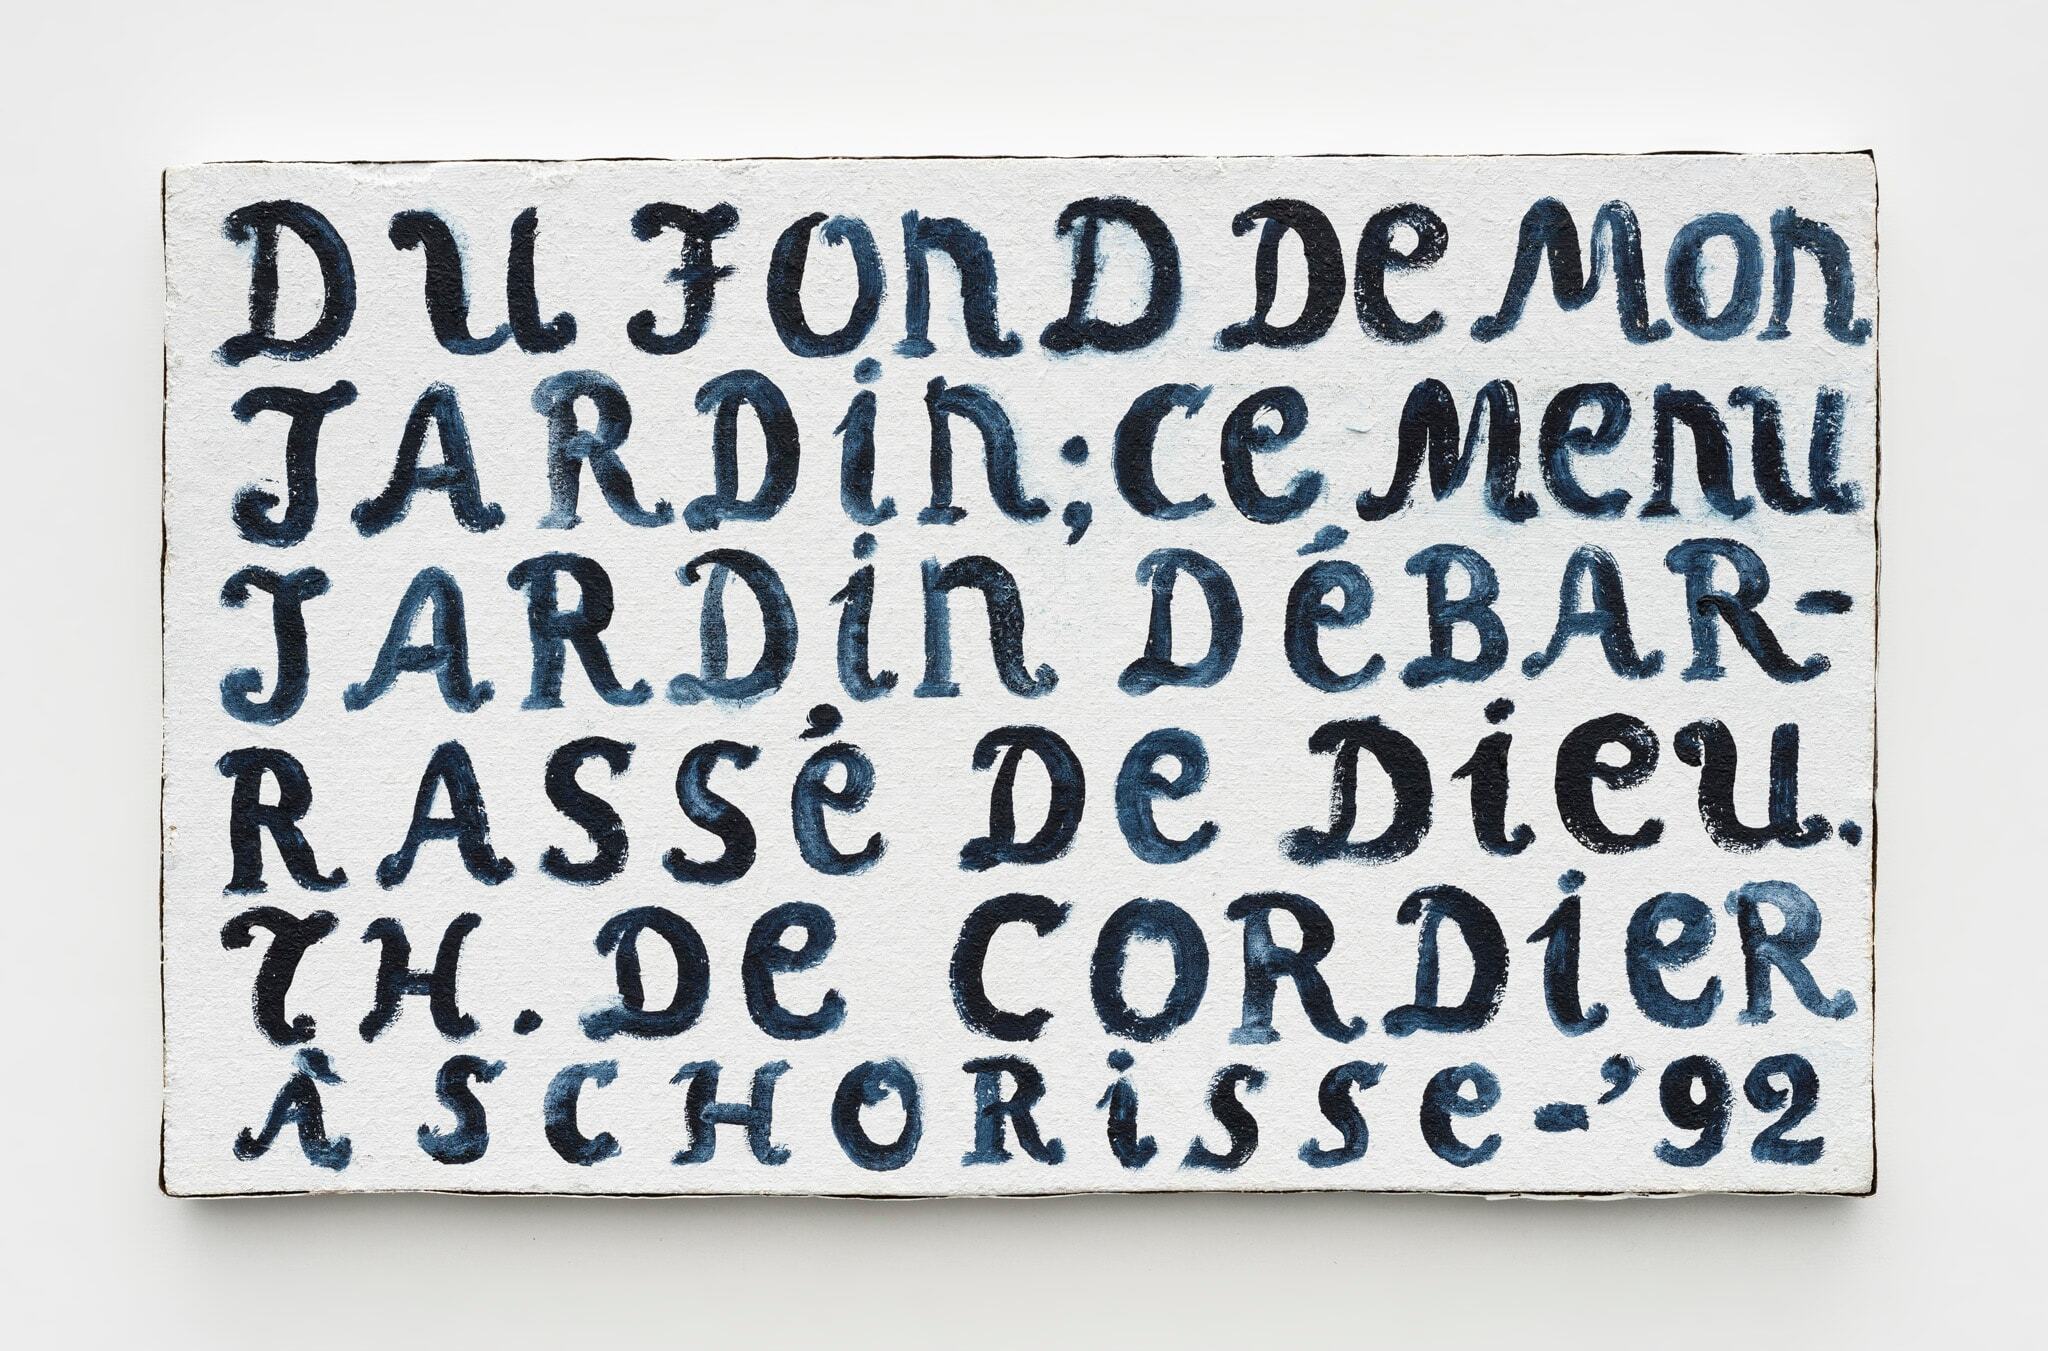 DU FOND DE MON
JARDIN; CE MENU
JARDIN DÉBAR-
RASSÉ DE DIEU.
TH. DE CORDIER
À SCHORISSE-'92